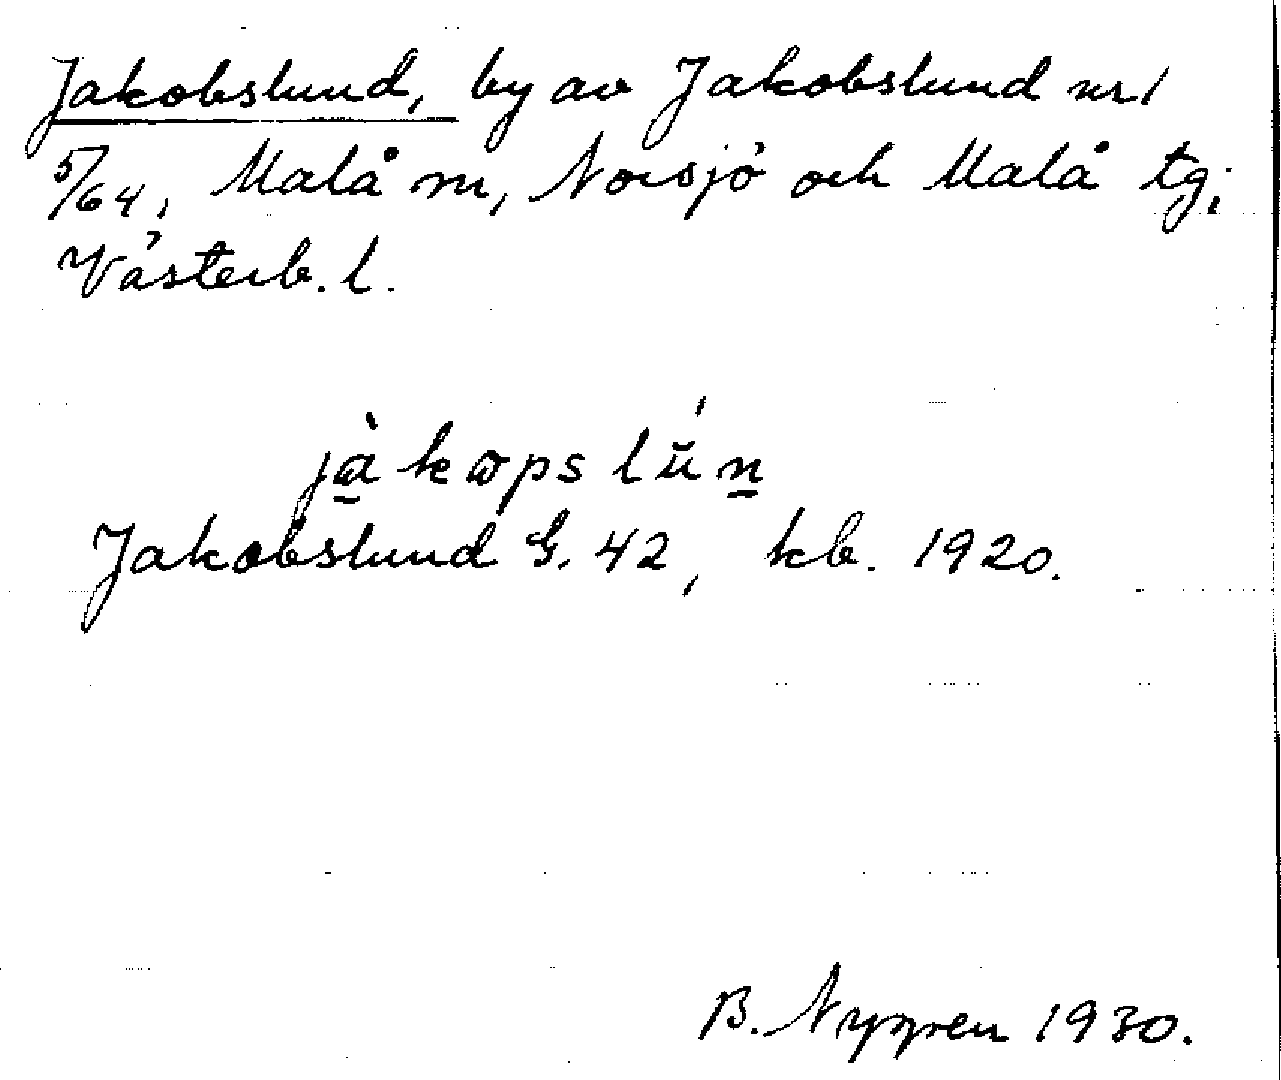 Jakobslund, by av Jakobslund nr 1
5/64, Malå sn, Norsjö och Malå tg;
Västerb. l.
jàkopslún
Jakobslund G. 42, kb. 1920.
B. Nygren 1930.